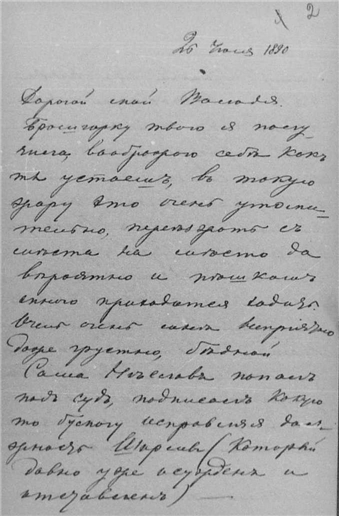 2
26 Июля 1890
Дорогой мой Володя.
твоего я полу
чила, воображаю себе как
ты устаешь, в такую
жару это очень утоми-
тельно, переезжать с
места на место да
вероятно и пешком
много приходится ходить.
Очень очень нам неприятно
даже грустно, бедной
Саша попал
под суд, подписал какую
то бумагу исправляя дол
жность (который
давно уже осужден и
отставлен) —